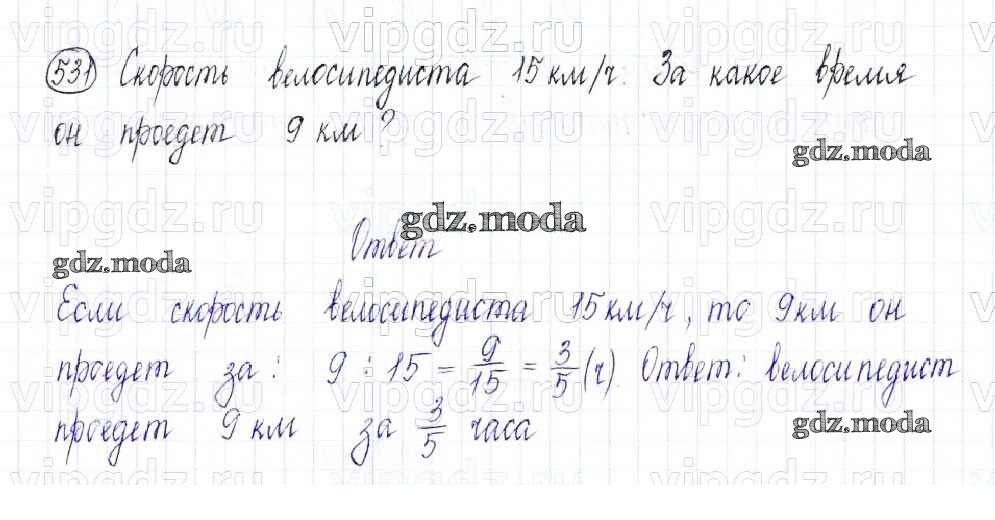 531 Скорость велосипедиста 15 км/ч. За какое время
он проедет 9 км?
gdz.moda
gdz.moda
Ответ
gdz.moda
Если скорость велосипедиста 15 км/ч, то 9 км он
проедет за: 9 : 15 = 9/15 = 3/5 (ч). Ответ: велосипедист
проедет 9 км за 3/5 часа
gdz.moda
vipgdz.ru